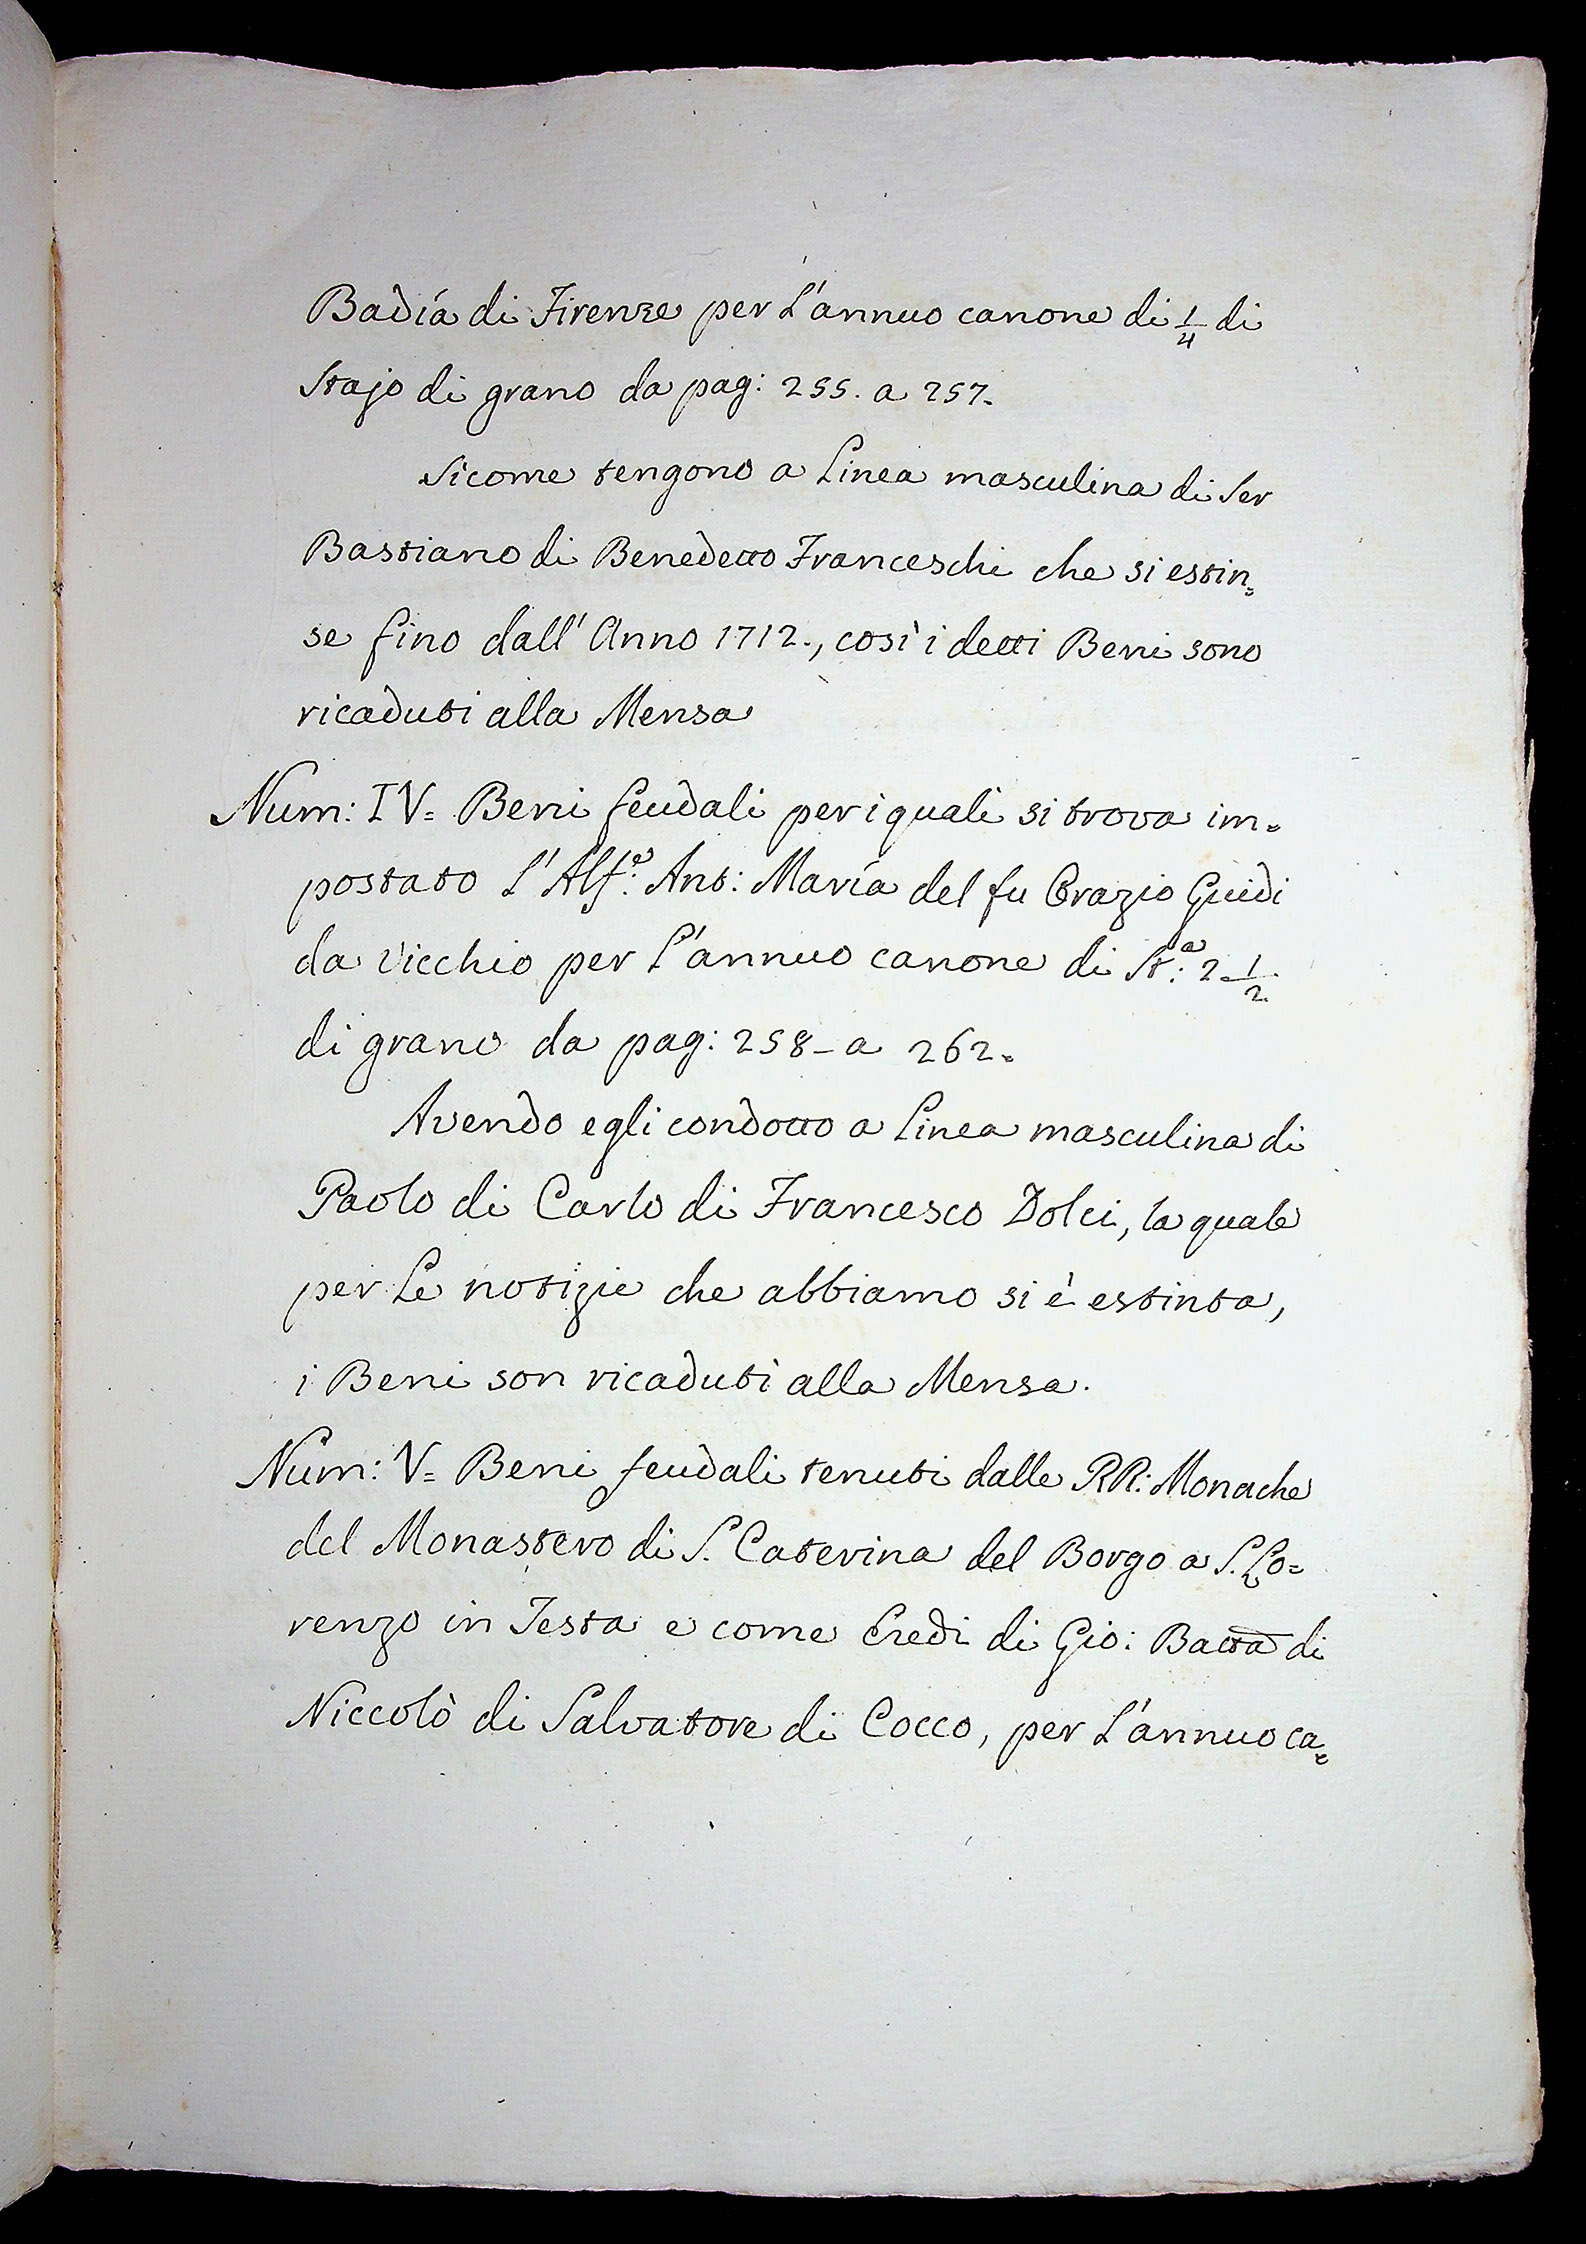 Badía di Firenze per l'annuo canone di 1/4 di
Stajo di grano da pag: 255. a 257.
Sicome tengono a linea masculina di Ser
Bastiano di Benedetto Franceschi che si estin=
se fino dall' Anno 1712., così i detti Beni sono
ricaduti alla Mensa
Num: IV= Beni feudali per i quali si trova im=
postato l'Alf.e: Ant: María del fu Orazio Guidi
da Vicchio per l'annuo canone di St.a: 2 1/2
di grano da pag: 258 - a 262.
Avendo egli condotto a linea masculina di
Paolo di Carlo di Francesco Dolci, la quale
per le notizie che abbiamo si è estinta,
i Beni son ricaduti alla Mensa.
Num: V= Beni feudali tenuti dalle RR: Monache
del Monastero di S. Caterina del Borgo a S. Lo=
renzo in Testa e come Eredi di Gio: Batta di
Niccolò di Salvatore di Cocco, per l'annuo ca=